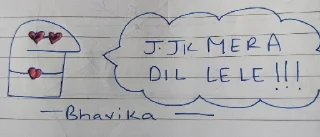 J.JK MERA
DIL LELE!!!
—Bhavika —